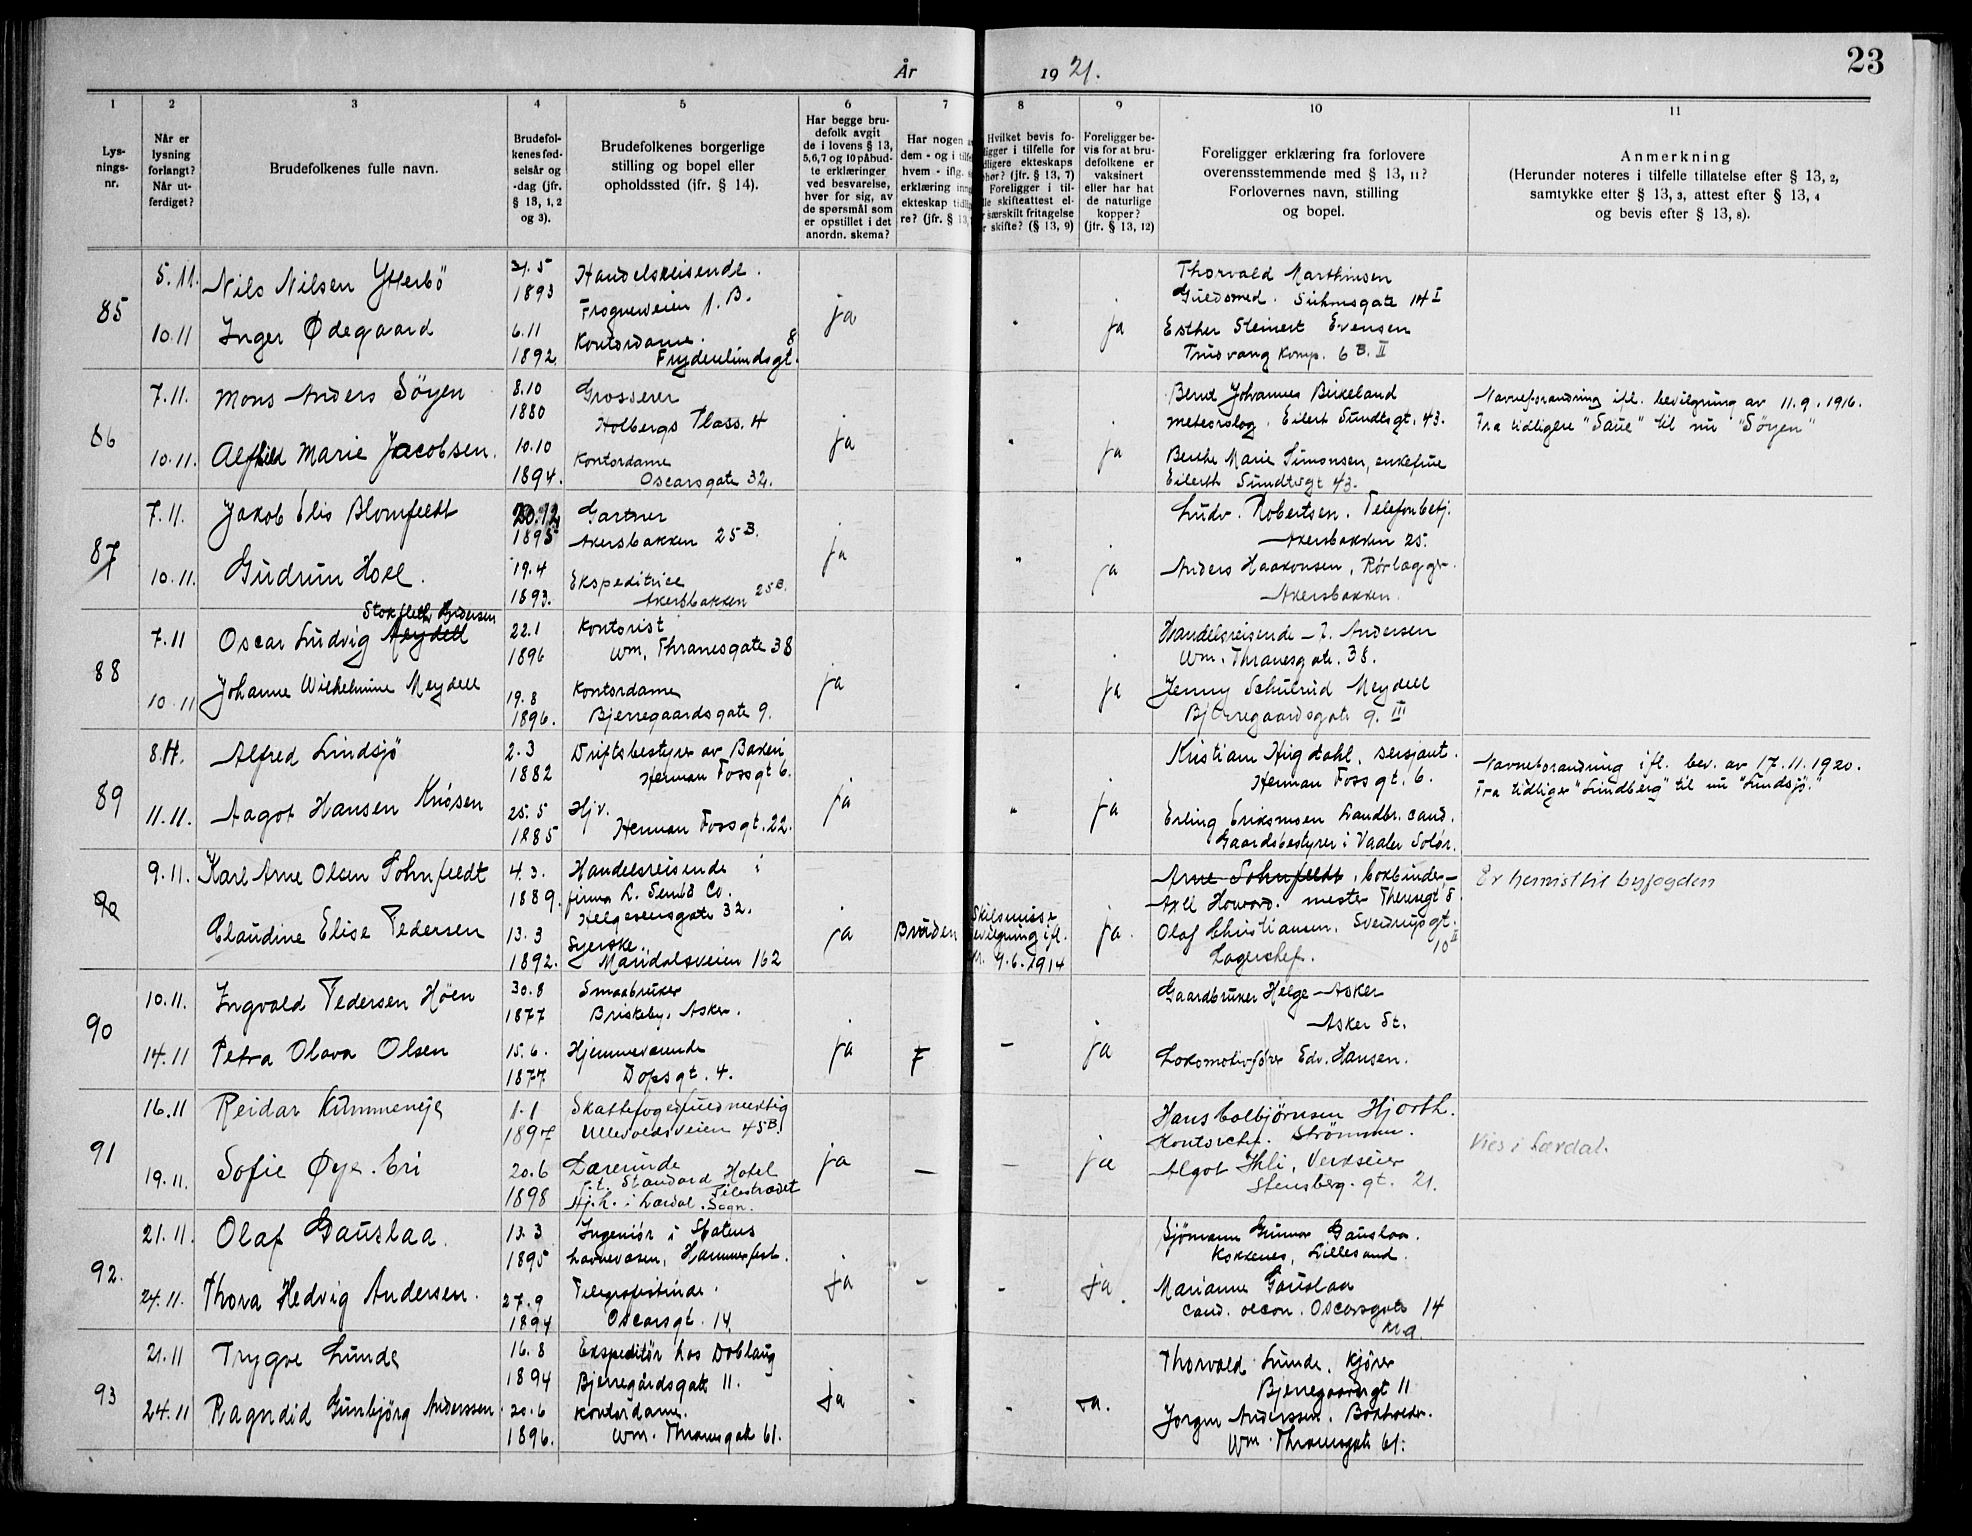 År 1921.
23
1
2
3
4
5
6
7
8
9
10
11
Lys-
nings-
nr.
Når er
lysning
forlangt?
Når ut-
ferdiget?
Brudefolkenes fulle navn.
Brudefol-
kenes fød-
selsår og
-dag (jfr.
§ 13, 1, 2
og 3).
Brudefolkenes borgerlige
stilling og bopel eller
opholdssted (jfr. § 14).
Har begge bru-
defolk avgit
de i lovens § 13,
5, 6, 7 og 10 påbud-
te erklæringer
ved besvarelse,
hver for sig, av
de spørsmål som
er opstillet i det
anordn. skema?
Har nogen
dem - og i tilfe
hvem - iflg.
erklæring inng
ekteskap tidlig
re? (jfr. § 13,
Hvilket bevis fo-
ligger i tilfelle for
dligere ekteskaps
phør? (jfr. § 13, 7)
Foreligger i til-
lle skifteattest el-
r særskilt fritagelse
r skifte? (§ 13, 9)
Foreligger be-
vis for at bru-
defolkene er
vaksinert
eller har hat
de naturlige
kopper?
(jfr. § 13, 12)
Foreligger erklæring fra forlovere
overensstemmende med § 13, 11?
Forlovernes navn, stilling
og bopel.
Anmerkning
(Herunder noteres i tilfelle tillatelse efter § 13, 2,
samtykke efter § 13, 3, attest efter § 13, 4
og bevis efter § 13, 8).
85
5.11.
10.11
Nils Nilsen Ytterbö
Inger Ødegaard
1893
6.11
1892.
Handelsreisende.
Frogneveien 1. B.
Kontordame. 8
Frydenlundsgt.
ja
ja
Thorvald Marthinsen
Guldsmed. Suhmsgate 14 I
Esther Steinert Evensen
Trudvang komp. 6 B. II
86
7.11.
10.11.
Mons Anders Söyen
Alfhild Marie Jacobsen.
8.10
1880
10.10
1894.
Grosserer
Holbergs Plass. 4
Kontordame
Oscarsgate 32.
ja
ja
Bernt Johannes Birkeland
meteorolog. Eilert Sundtsgt. 43.
Berthe Marie Simonsen, enkefrue
Eilerth Sundtsgt 43.
Navneforandring ifl. bevilgning av 11.9.1916.
Fra tidligere "Saue" til nu "Söyen"
87
7.11.
10.11.
Jakob Elis Blomfeldt
Gudrun Holl.
1895
19.4
1893.
Gartner
Akersbakken 25 B.
Ekspeditrice
Akersbakken 25 B.
ja
ja
Ludv. Robertsen. Telefonbetj.
Akersbakken 25.
Anders Haakonsen, Rörlægger.
Akersbakken.
88
7.11
10.11
Stokfleth Andersen
Oscar Ludvig Meydell
Johanne Wilhelmine Meydell
22.1
1896
19.8
1896.
Kontorist
Wm. Thranesgate 38
Kontordame
Bjerregaardsgate 9.
ja
ja
Handelsreisende J. Andersen
Wm. Thranesgate. 38.
Jenny Schulrud Meydell
Bjerregaardsgate 9. III
89
8.11.
11.11.
Alfred Lindsjö
Aagot Hansen Knösen
2.3
1882
25.5
1885
Driftsbestyrer av Bakeri
Herman Fossgt 6.
Hjv.
Herman Fossgt. 22.
ja
ja
Kristian Higdahl, sersjant.
Herman Fossgt. 6.
Erling Eriksmoen Landbr. cand.
Gaardsbestyrer i Vaaler Solör.
Navneforandring ifl. bev. av 17.11.1920.
Fra tidliger "Lundberg" til nu "Lindsjö."
90
9.11.
Karl Arne Olsen Sohnfeldt
Claudine Elise Pedersen
4.3.
1889.
13.3
1892.
Handelsreisende i
firma
Helgesensgate 32.
Syerske.
Maridalsveien 162
ja
Bruden
Skilsmisse
bevilgning ifl.
9.6.1914
ja.
Arne Sohnfeldt, bokbinder-
Axel Howard. mester
Olaf Christiansen. Sverdrupsgt.
10 II
Lagerchef.
Er henvist til byfogden
90
10.11.
14.11
Ingvald Pedersen Höen
Petra Olava Olsen
30.8
1877
15.6.
1877.
Smaabruker
Briskeby, Asker.
Hjemmeværende
Dopsgt. 4.
ja
F
–
ja
Gaardbruker Helge Asker
Asker St.
Lokomotivförer Edv. Hansen.
91
16.11
19.11.
Reidar Kummeneje
Sofie Øye Eri
1.1
1897
20.6
1898
Skattefogedfuldmektig
Ullevoldsveien 45 B.
Lærerinde
f.t. Standard Hotel
Pilestrædet
Hj.h. i Lærdal. Sogn.
ja
–
–
ja
Hans Colbjørnsen Hjorth.
Kontorchef. Strömmen.
Algot Ihli, Verkseier
Stensberg. gt. 21.
Vies i Lærdal.
92.
21.11.
24.11.
Olaf Gauslaa.
Thora Hedvig Andersen.
13.3
1895
27.9
1894
Ingeniör i Statens
havnevæsen, Hammerfest.
Telegrafistinde.
Oscarsgt. 14.
ja
–
–
ja.
Sjömann Gunnar Gauslaa.
Kokkenes, Lillesand.
Marianne Gauslaa
cand. oecon. Oscarsgate 14
Kra.
93
21.11
24.11
Trygve Lunde
Ragndid Gunbjörg Anderssen
16.8
1894
20.6
1896.
Ekspeditör hos Dobloug
Bjerregårdsgate 11.
Kontordame.
Wm. Thranesgate 61.
ja
ja.
Thorvald Lunde. Kjörer
Bjerregaardsgt 11
Jorgen Anderssen. Bokholder.
Wm. Thranesgate 61.